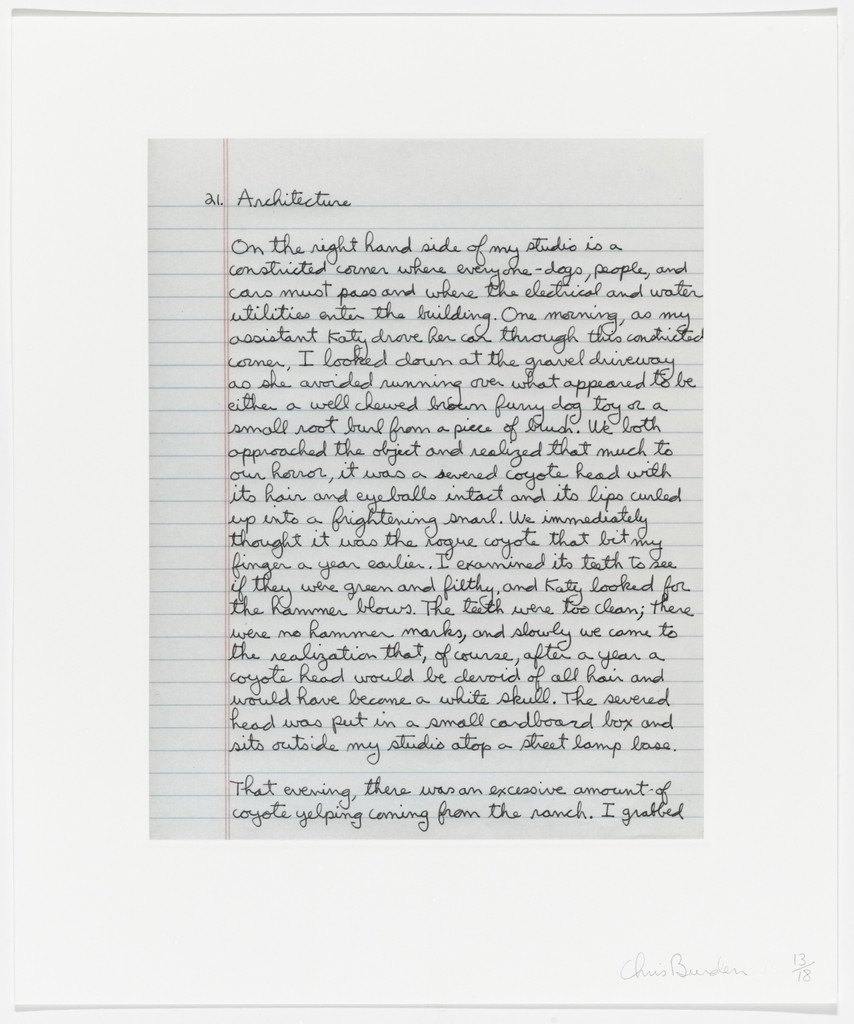 21. Architecture
On the right hand side of my studio is a
constricted corner where everyone - dogs, people, and
cars must pass and where the electrical and water
utilities enter the building. One morning, as my
assistant Katy drove her car through this constricted
corner, I looked down at the gravel driveway
as she avoided running over what appeared to be
either a well chewed brown furry dog toy or a
small root burl from a piece of brush. We both
approached the object and realized that much to
our horror, it was a severed coyote head with
its hair and eyeballs intact and its lips curled
up into a frightening snarl. We immediately
thought it was the rogue coyote that bit my
finger a year earlier. I examined its teeth to see
if they were green and filthy, and Katy looked for
the hammer blows. The teeth were too clean; there
were no hammer marks, and slowly we came to
the realization that, of course, after a year a
coyote head would be devoid of all hair and
would have become a white skull. The severed
head was put in a small cardboard box and
sits outside my studio atop a street lamp base.
That evening, there was an excessive amount of
coyote yelping coming from the ranch. I grabbed
Chris Burden 13/18